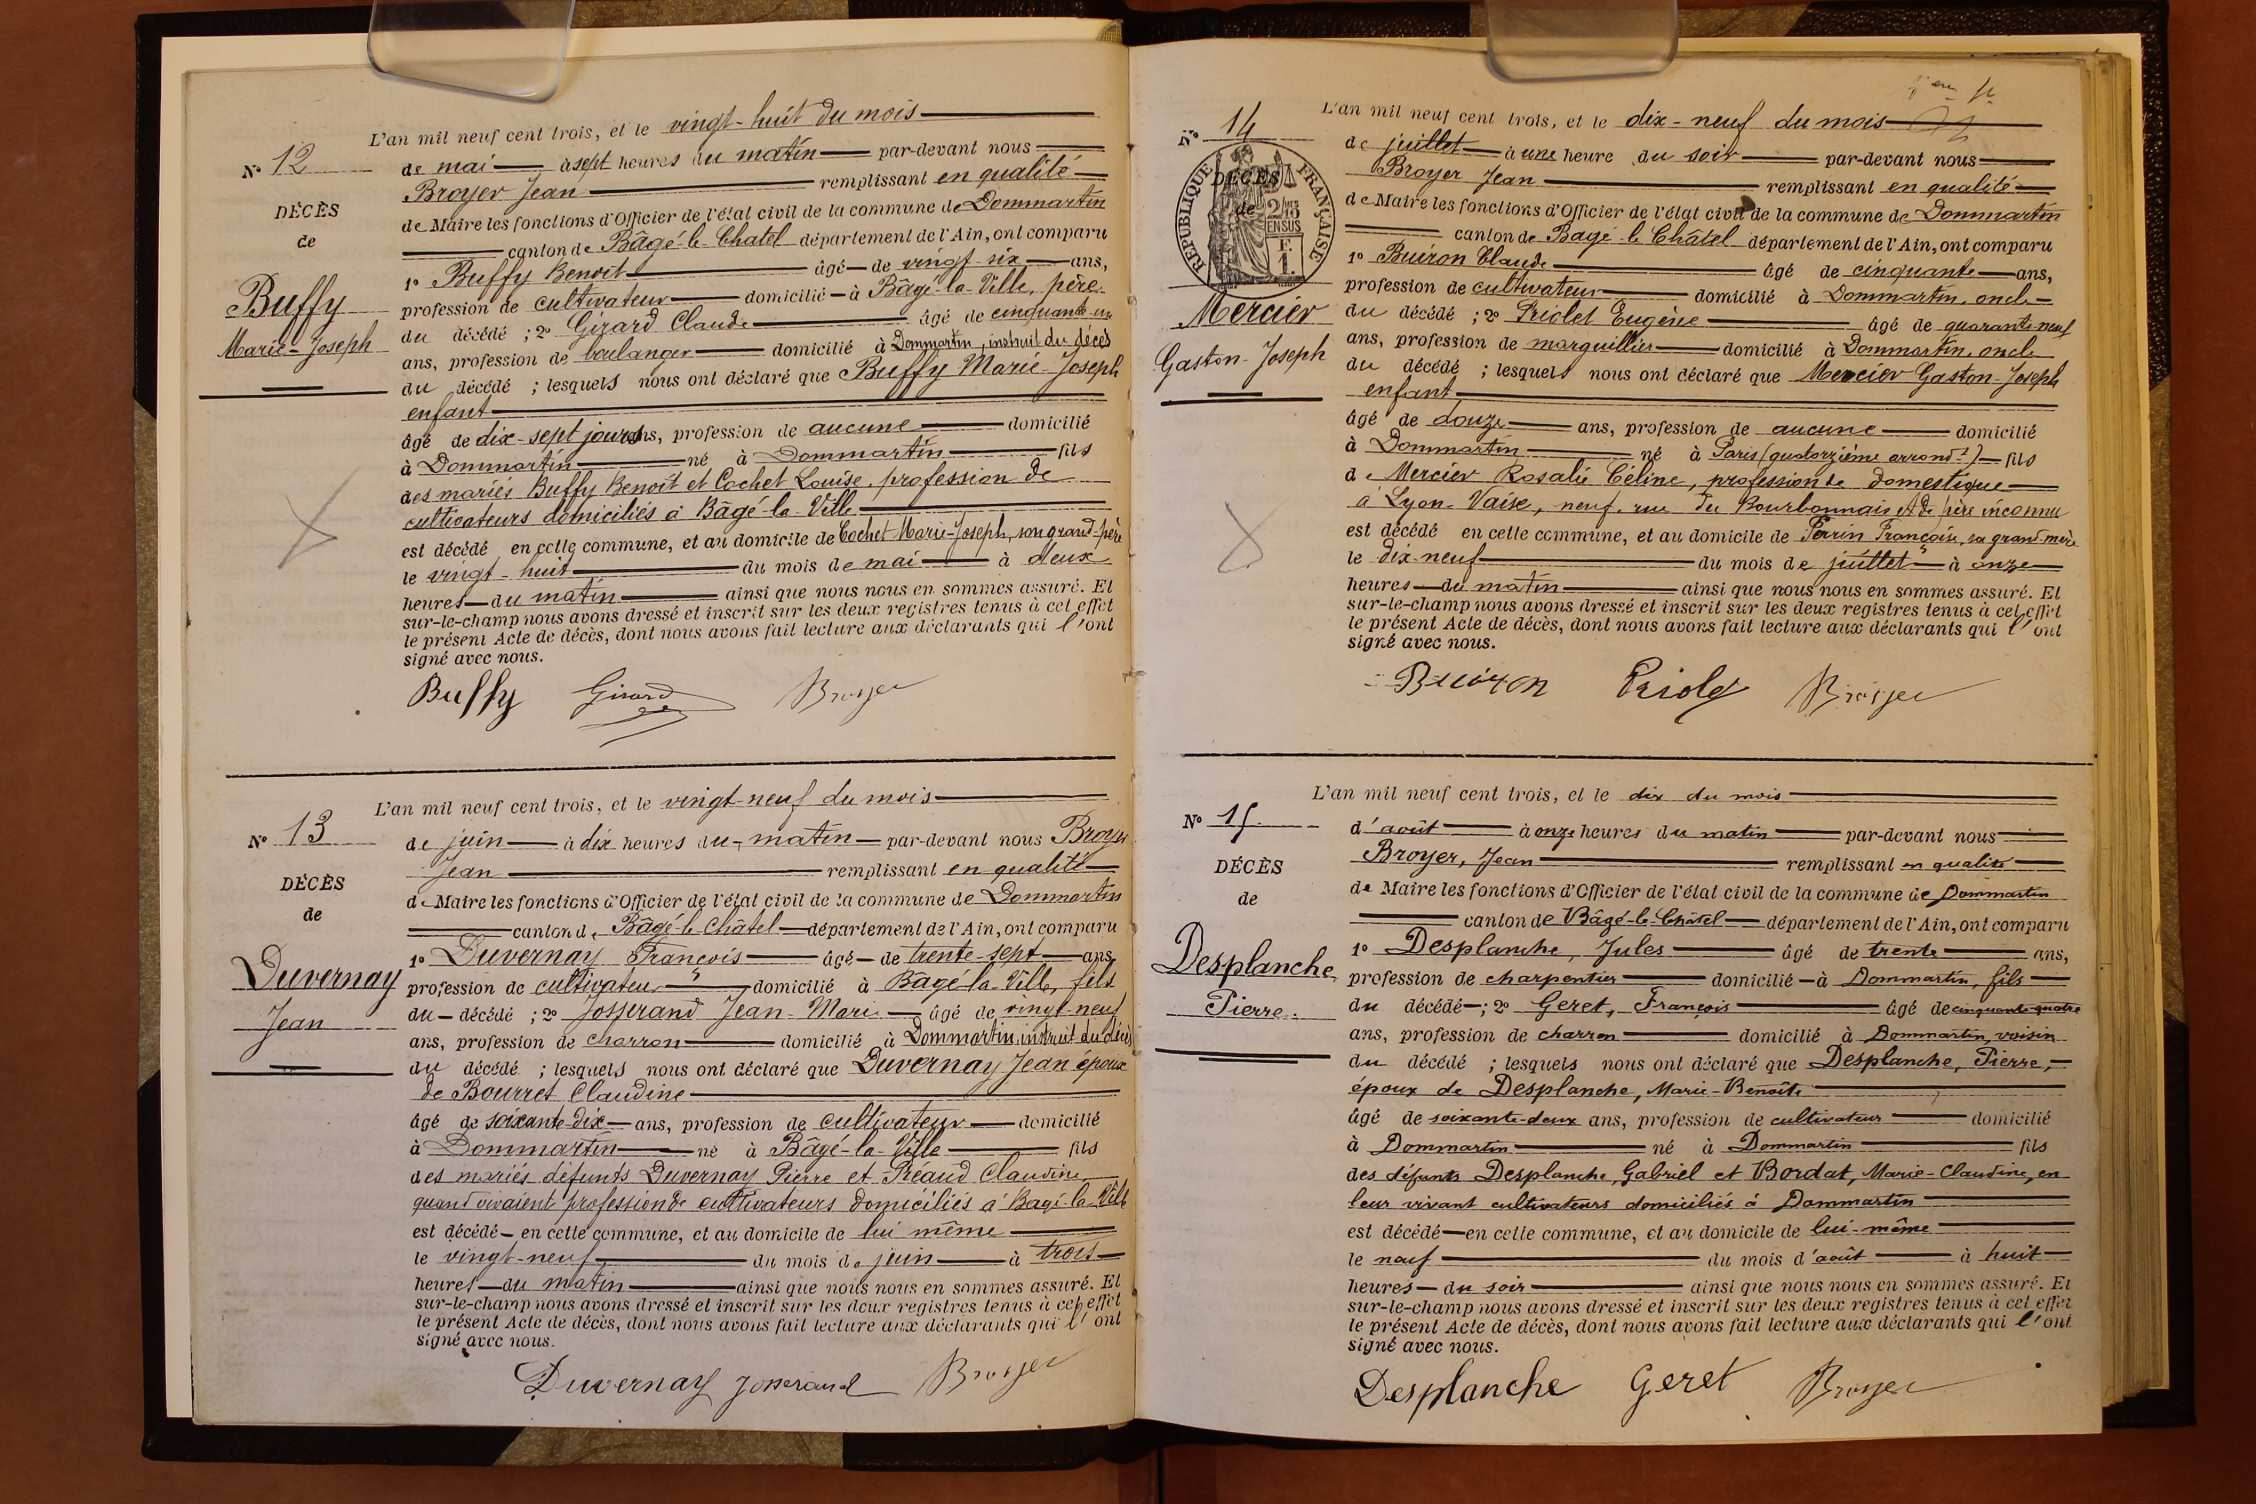 L'an mil neuf cent trois, et le vingt-huit du mois
N° 12
de mai à sept heures du matin par-devant nous
Broyer Jean remplissant en qualité
DÉCÈS
de Maire les fonctions d'Officier de l'état civil de la commune de Dommartin
de
canton de Bâgé-le-Chatel département de l'Ain, ont comparu
1° Buffy Benoit âgé de vingt six ans,
Buffy
profession de cultivateur domicilié à Bâgé-la-Ville, père
du décédé ; 2° Girard Claude âgé de cinquante un
Marie-Joseph
ans, profession de boulanger domicilié à Dommartin, instruit du décès
du décédé ; lesquels nous ont déclaré que Buffy Marie-Joseph
enfant
âgé de dix-sept jours ans, profession de aucune domicilié
à Dommartin né à Dommartin fils
des mariés Buffy Benoît et Cochet Louise, profession de
cultivateurs domiciliés à Bâgé-la-Ville
est décédé en cette commune, et au domicile de Cochet Marie-Joseph, son grand-père
le vingt-huit du mois de mai à deux
heures du matin ainsi que nous nous en sommes assuré. Et
sur-le-champ nous avons dressé et inscrit sur les deux registres tenus à cet effet
le présent Acte de décès, dont nous avons fait lecture aux déclarants qui l'ont
signé avec nous.
Buffy Girard Broyer
L'an mil neuf cent trois, et le vingt-neuf du mois
N° 13
de juin à dix heures du matin par-devant nous Broyer
Jean remplissant en qualité
DÉCÈS
de Maire les fonctions d'Officier de l'état civil de la commune de Dommartin
de
canton de Bâgé-le-Châtel département de l'Ain, ont comparu
1° Duvernay François âgé de trente-sept ans,
Duvernay
profession de cultivateur domicilié à Bâgé-la-Ville, fils
du décédé ; 2° Josserand Jean-Marie âgé de vingt-neuf
Jean
ans, profession de charron domicilié à Dommartin, instruit du décès
du décédé ; lesquels nous ont déclaré que Duvernay Jean époux
de Bourret Claudine
âgé de soixante-dix ans, profession de cultivateur domicilié
à Dommartin né à Bâgé-la-Ville fils
des mariés défunts Duvernay Pierre et Préaud Claudine
quand vivaient profession de cultivateurs domiciliés à Bagé-la-Ville
est décédé en cette commune, et au domicile de lui même
le vingt-neuf du mois de juin à trois
heures du matin ainsi que nous nous en sommes assuré. Et
sur-le-champ nous avons dressé et inscrit sur les deux registres tenus à cet effet
le présent Acte de décès, dont nous avons fait lecture aux déclarants qui l'ont
signé avec nous.
Duvernay Josserand Broyer
L'an mil neuf cent trois, et le dix-neuf du mois
N° 14
de juillet à une heure du soir par-devant nous
RÉPUBLIQUE FRANÇAISE
DÉCÈS
Broyer Jean remplissant en qualité
de
2/10
EN SUS
de Maire les fonctions d'Officier de l'état civil de la commune de Dommartin
canton de Bagé-le-Châtel département de l'Ain, ont comparu
1° Buiron Claude âgé de cinquante ans,
profession de cultivateur domicilié à Dommartin, oncle
Mercier
du décédé ; 2° Priolet Eugène âgé de quarante neuf
ans, profession de marguillier domicilié à Dommartin, oncle
Gaston-Joseph
du décédé ; lesquels nous ont déclaré que Mercier Gaston-Joseph
enfant
âgé de douze ans, profession de aucune domicilié
à Dommartin né à Paris (quatorzième arrondt) fils
de Mercier Rosalie Céline, profession de domestique
à Lyon-Vaise, neuf, rue du Bourbonnais et de père inconnu
est décédé en cette commune, et au domicile de Perrin Françoise, sa grand-mère
le dix-neuf du mois de juillet à onze
heures du matin ainsi que nous nous en sommes assuré. Et
sur-le-champ nous avons dressé et inscrit sur les deux registres tenus à cet effet
le présent Acte de décès, dont nous avons fait lecture aux déclarants qui l'ont
signé avec nous.
Buiron Priolet Broyer
L'an mil neuf cent trois, et le dix du mois
N° 15
d'août à onze heures du matin par-devant nous
Broyer, Jean remplissant en qualité
DÉCÈS
de Maire les fonctions d'Officier de l'état civil de la commune de Dommartin
de
canton de Bâgé-le-Châtel département de l'Ain, ont comparu
1° Desplanche, Jules âgé de trente ans,
Desplanche
profession de charpentier domicilié à Dommartin, fils
du décédé ; 2° Geret, François âgé de cinquante-quatre
Pierre
ans, profession de charron domicilié à Dommartin, voisin
du décédé ; lesquels nous ont déclaré que Desplanche, Pierre,
époux de Desplanche, Marie-Benoîte
âgé de soixante-deux ans, profession de cultivateur domicilié
à Dommartin né à Dommartin fils
des défunts Desplanche, Gabriel et Bordat, Marie-Claudine, en
leur vivant cultivateurs domiciliés à Dommartin
est décédé en cette commune, et au domicile de lui-même
le neuf du mois d'août à huit
heures du soir ainsi que nous nous en sommes assuré. Et
sur-le-champ nous avons dressé et inscrit sur les deux registres tenus à cet effet
le présent Acte de décès, dont nous avons fait lecture aux déclarants qui l'ont
signé avec nous.
Desplanche Geret Broyer